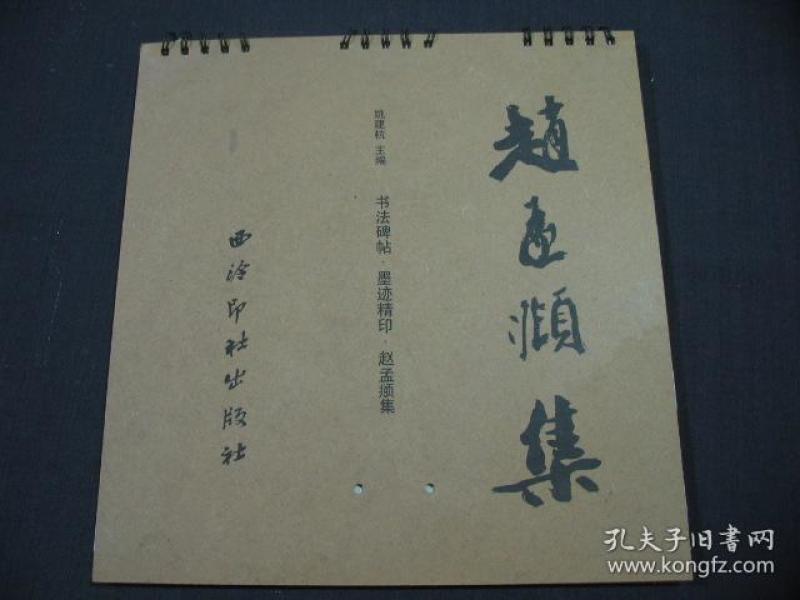 趙孟頫集
姚建杭 主编
书法碑帖·墨迹精印·赵孟頫集
西泠印社出版社
孔夫子旧書网
www.kongfz.com